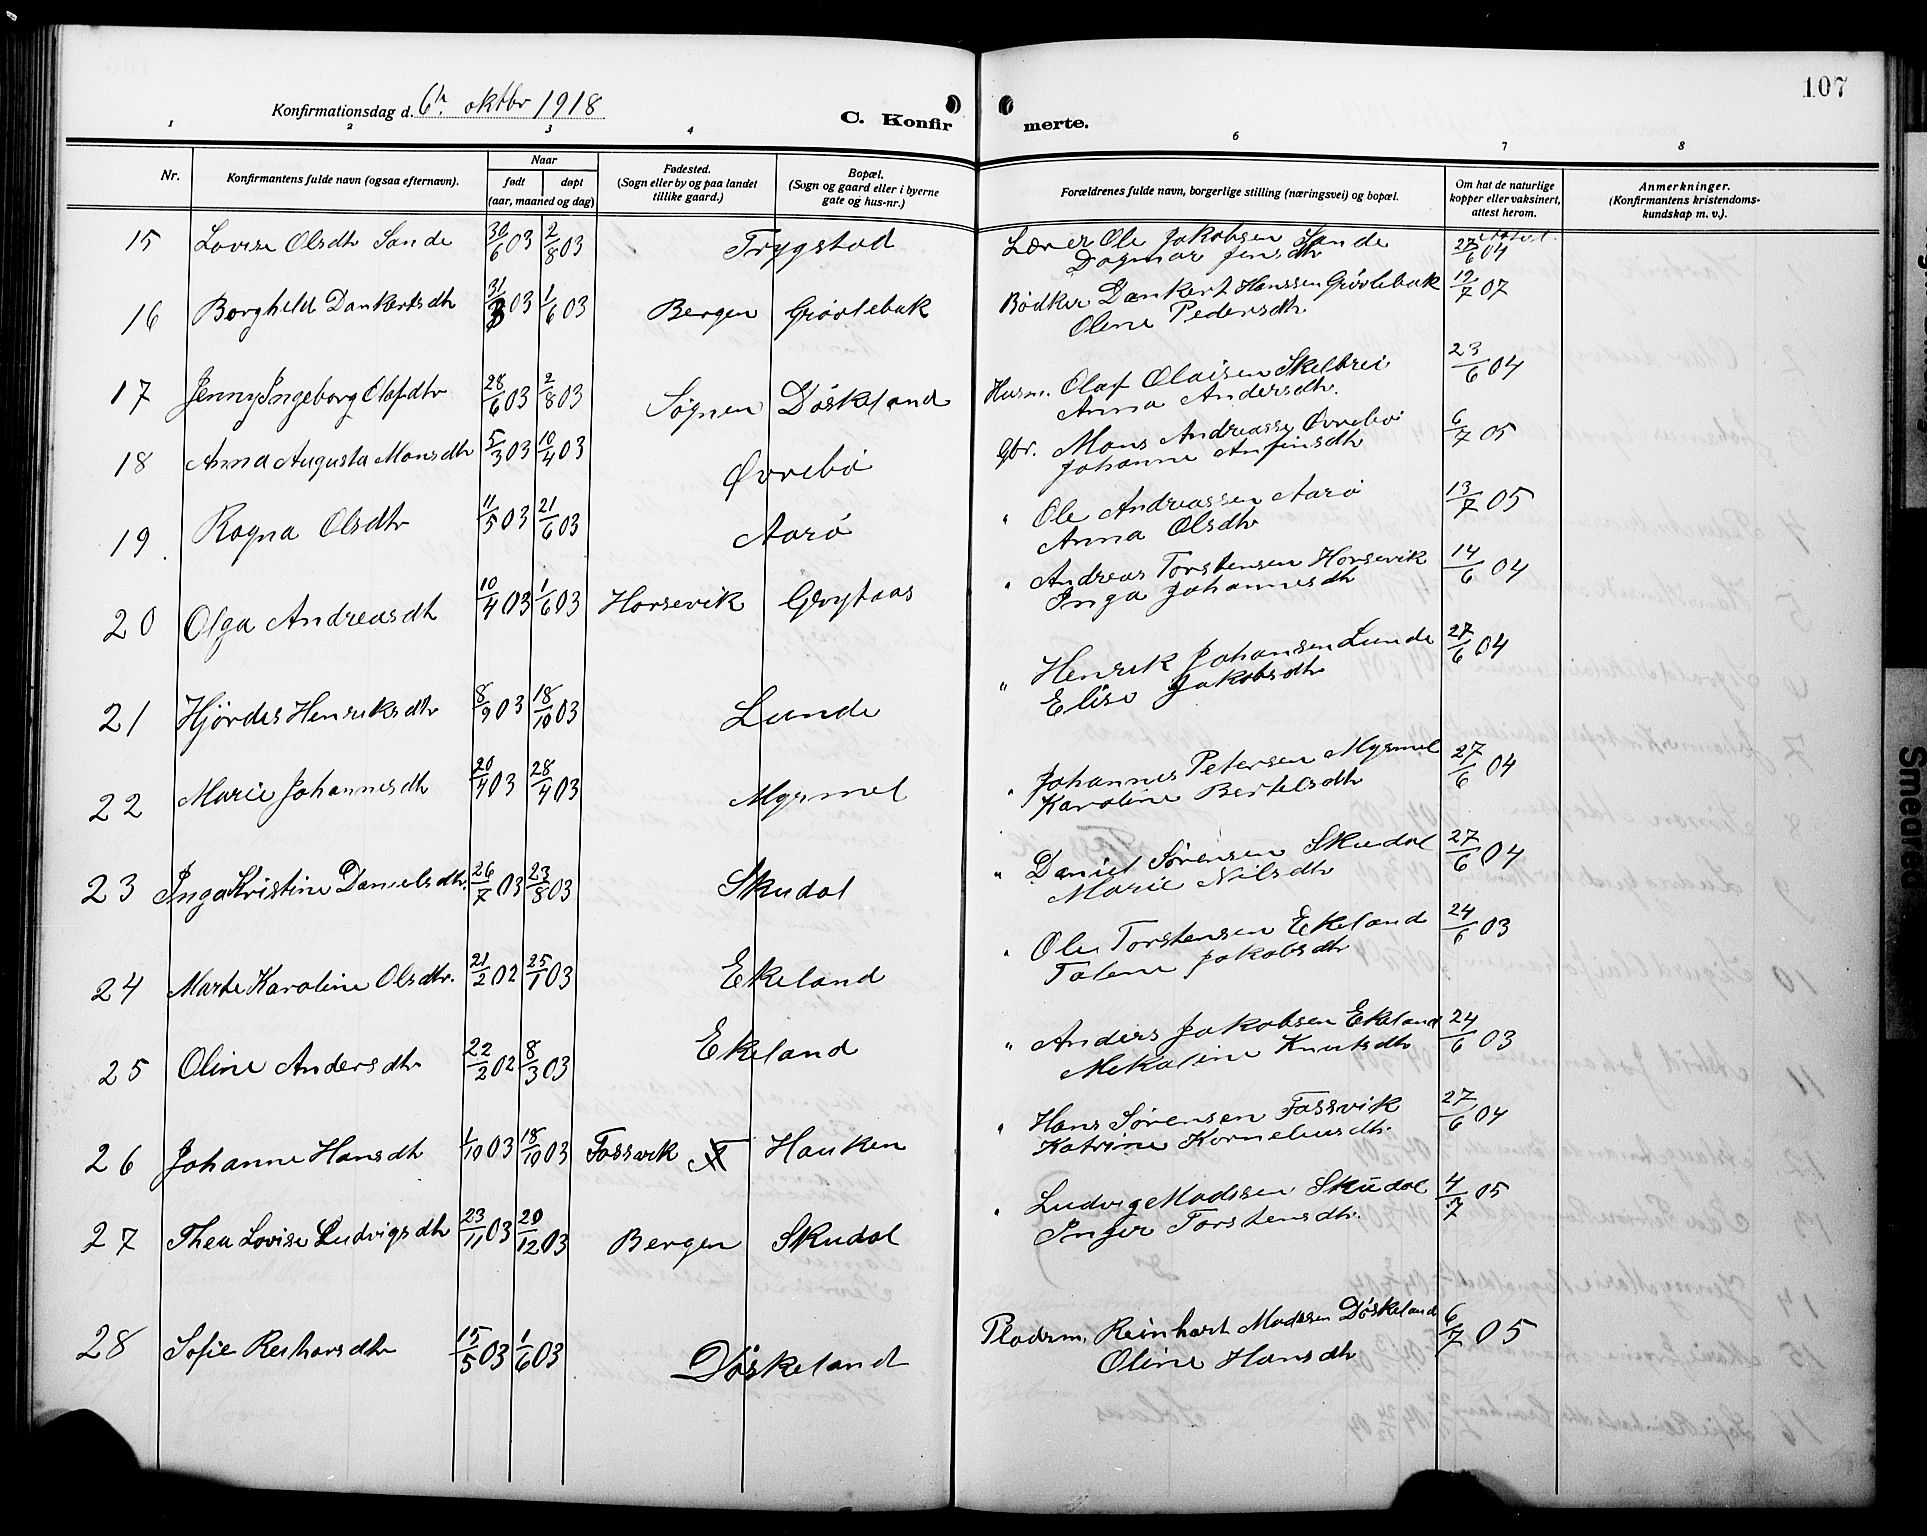 107
Konfirmationsdag d. 6te oktbr 1918
C. Konfirmerte.
1 2 3 4 6 7 8
Nr. | Konfirmantens fulde navn (ogsaa efternavn). | Naar født | døpt (aar, maaned og dag) | Fødested. (Sogn eller by og paa landet tillike gaard.) | Bopæl. (Sogn og gaard eller i byerne gate og hus-nr.) | Forældrenes fulde navn, borgerlige stilling (næringsvei) og bopæl. | Om hat de naturlige kopper eller vaksinert, attest herom. | Anmerkninger. (Konfirmantens kristendomskundskap m. v.).
15 Lovise Olsdtr Sande 30/6 03 2/8 03 Trygstad Lærer Ole Jakobsen Sande 27/6 04
Dagmar Jensdtr
16 Borghild Dankertsdtr 31/3 03 1/6 03 Bergen Grøvlebak Bødker Dankert Hanssen Grøvlebak 12/7 07
Oline Pedersdtr
17 Jenny Ingeborg Olafsdtr 28/6 03 2/8 03 Søgnen Døskeland Husm. Olaf Olaisen Skelbrei 23/6 04
Anna Andersdtr.
18 Anna Augusta Monsdtr 5/3 03 10/4 03 Øvrebø Gbr. Mons Andreassen Øvrebø 6/7 05
Johanne Anfinsdtr
19 Ragna Olsdtr 11/5 03 21/6 03 Aarø " Ole Andreassen Aarø 13/7 05
Anna Olsdtr
20 Olga Andreasdtr 10/4 03 1/6 03 Horsevik Grytaas " Andreas Torstensen Horsevik 14/6 04
Inga Johannesdtr
21 Hjørdis Henriksdtr 8/9 03 18/10 03 Lunde " Henrik Johansen Lunde 27/6 04
Elise Jakobsdtr
22 Marie Johannesdtr 20/4 03 28/4 03 Myrmel " Johannes Petersen Myrmel 27/6 04
Karoline Bertelsdtr
23 Inga Kristine Danielsdtr. 26/7 03 23/8 03 Skudal " Daniel Sørensen Skudal 27/6 04
Marie Nilsdtr
24 Marte Karoline Olsdtr. 21/2 02 25/1 03 Ekeland " Ole Torstensen Ekeland 24/6 03
Talene Jakobsdtr
25 Oline Andersdtr 22/2 02 8/3 03 Ekeland " Anders Jakobsen Ekeland 24/6 03
Mekaline Knutsdtr
26 Johanne Hansdtr 1/10 03 18/10 03 Fossvik Hauken " Hans Sørensen Fossvik 27/6 04
Katrine Korneliusdtr.
27 Thea Lovise Ludvigsdtr 23/11 03 20/12 03 Bergen Skudal " Ludvig Madssen Skudal 4/7 05
Inger Torstensdtr.
28 Sofie Reiharsdtr 15/5 03 1/6 03 Døskeland Pladsm. Reinhart Madssen Døskeland 6/7 05
Oline Hansdtr
Smeared